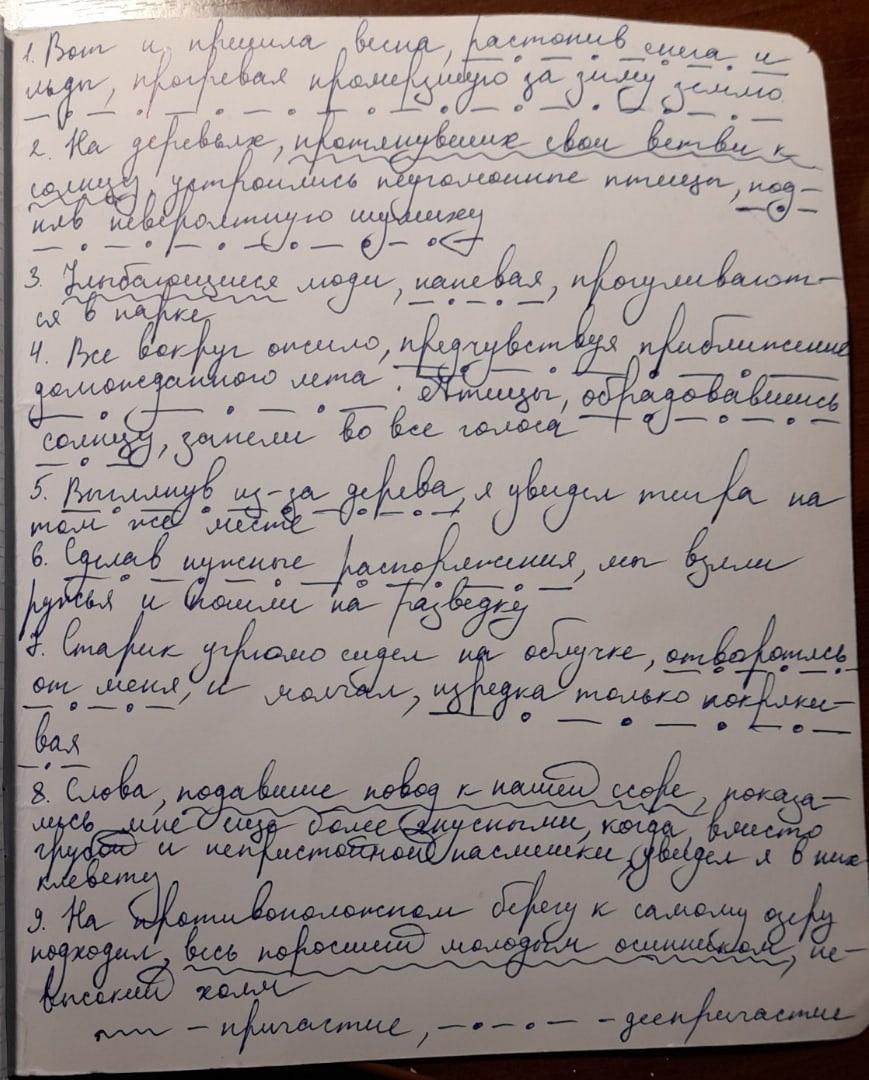 1. Вот и пришла весна, растопив снега и
льды, прогревая промерзшую за зиму землю
2. На деревьях, протянувших свои ветви к
солнцу, устроились неугомонные птицы, под-
няв невероятную шумиху
3. Улыбающиеся люди, напевая, прогуливают-
ся в парке
4. Все вокруг ожило, предчувствуя приближение
долгожданного лета. Птицы, обрадовавшись
солнцу, запели во все голоса
5. Выглянув из-за дерева, я увидел тигра на
том же месте
6. Сделав нужные распоряжения, мы взяли
ружья и пошли на разведку
7. Старик угрюмо сидел на облучке, отворотясь
от меня, и молчал, изредка только покряки-
вая
8. Слова, подавшие повод к нашей ссоре, показа-
лись мне еще более гнусными, когда, вместо
грубой и непристойной насмешки, увидел я в них
клевету
9. На противоположном берегу к самому озеру
подходил, весь поросший молодым осинником, не-
высокий холм
- причастие, - деепричастие